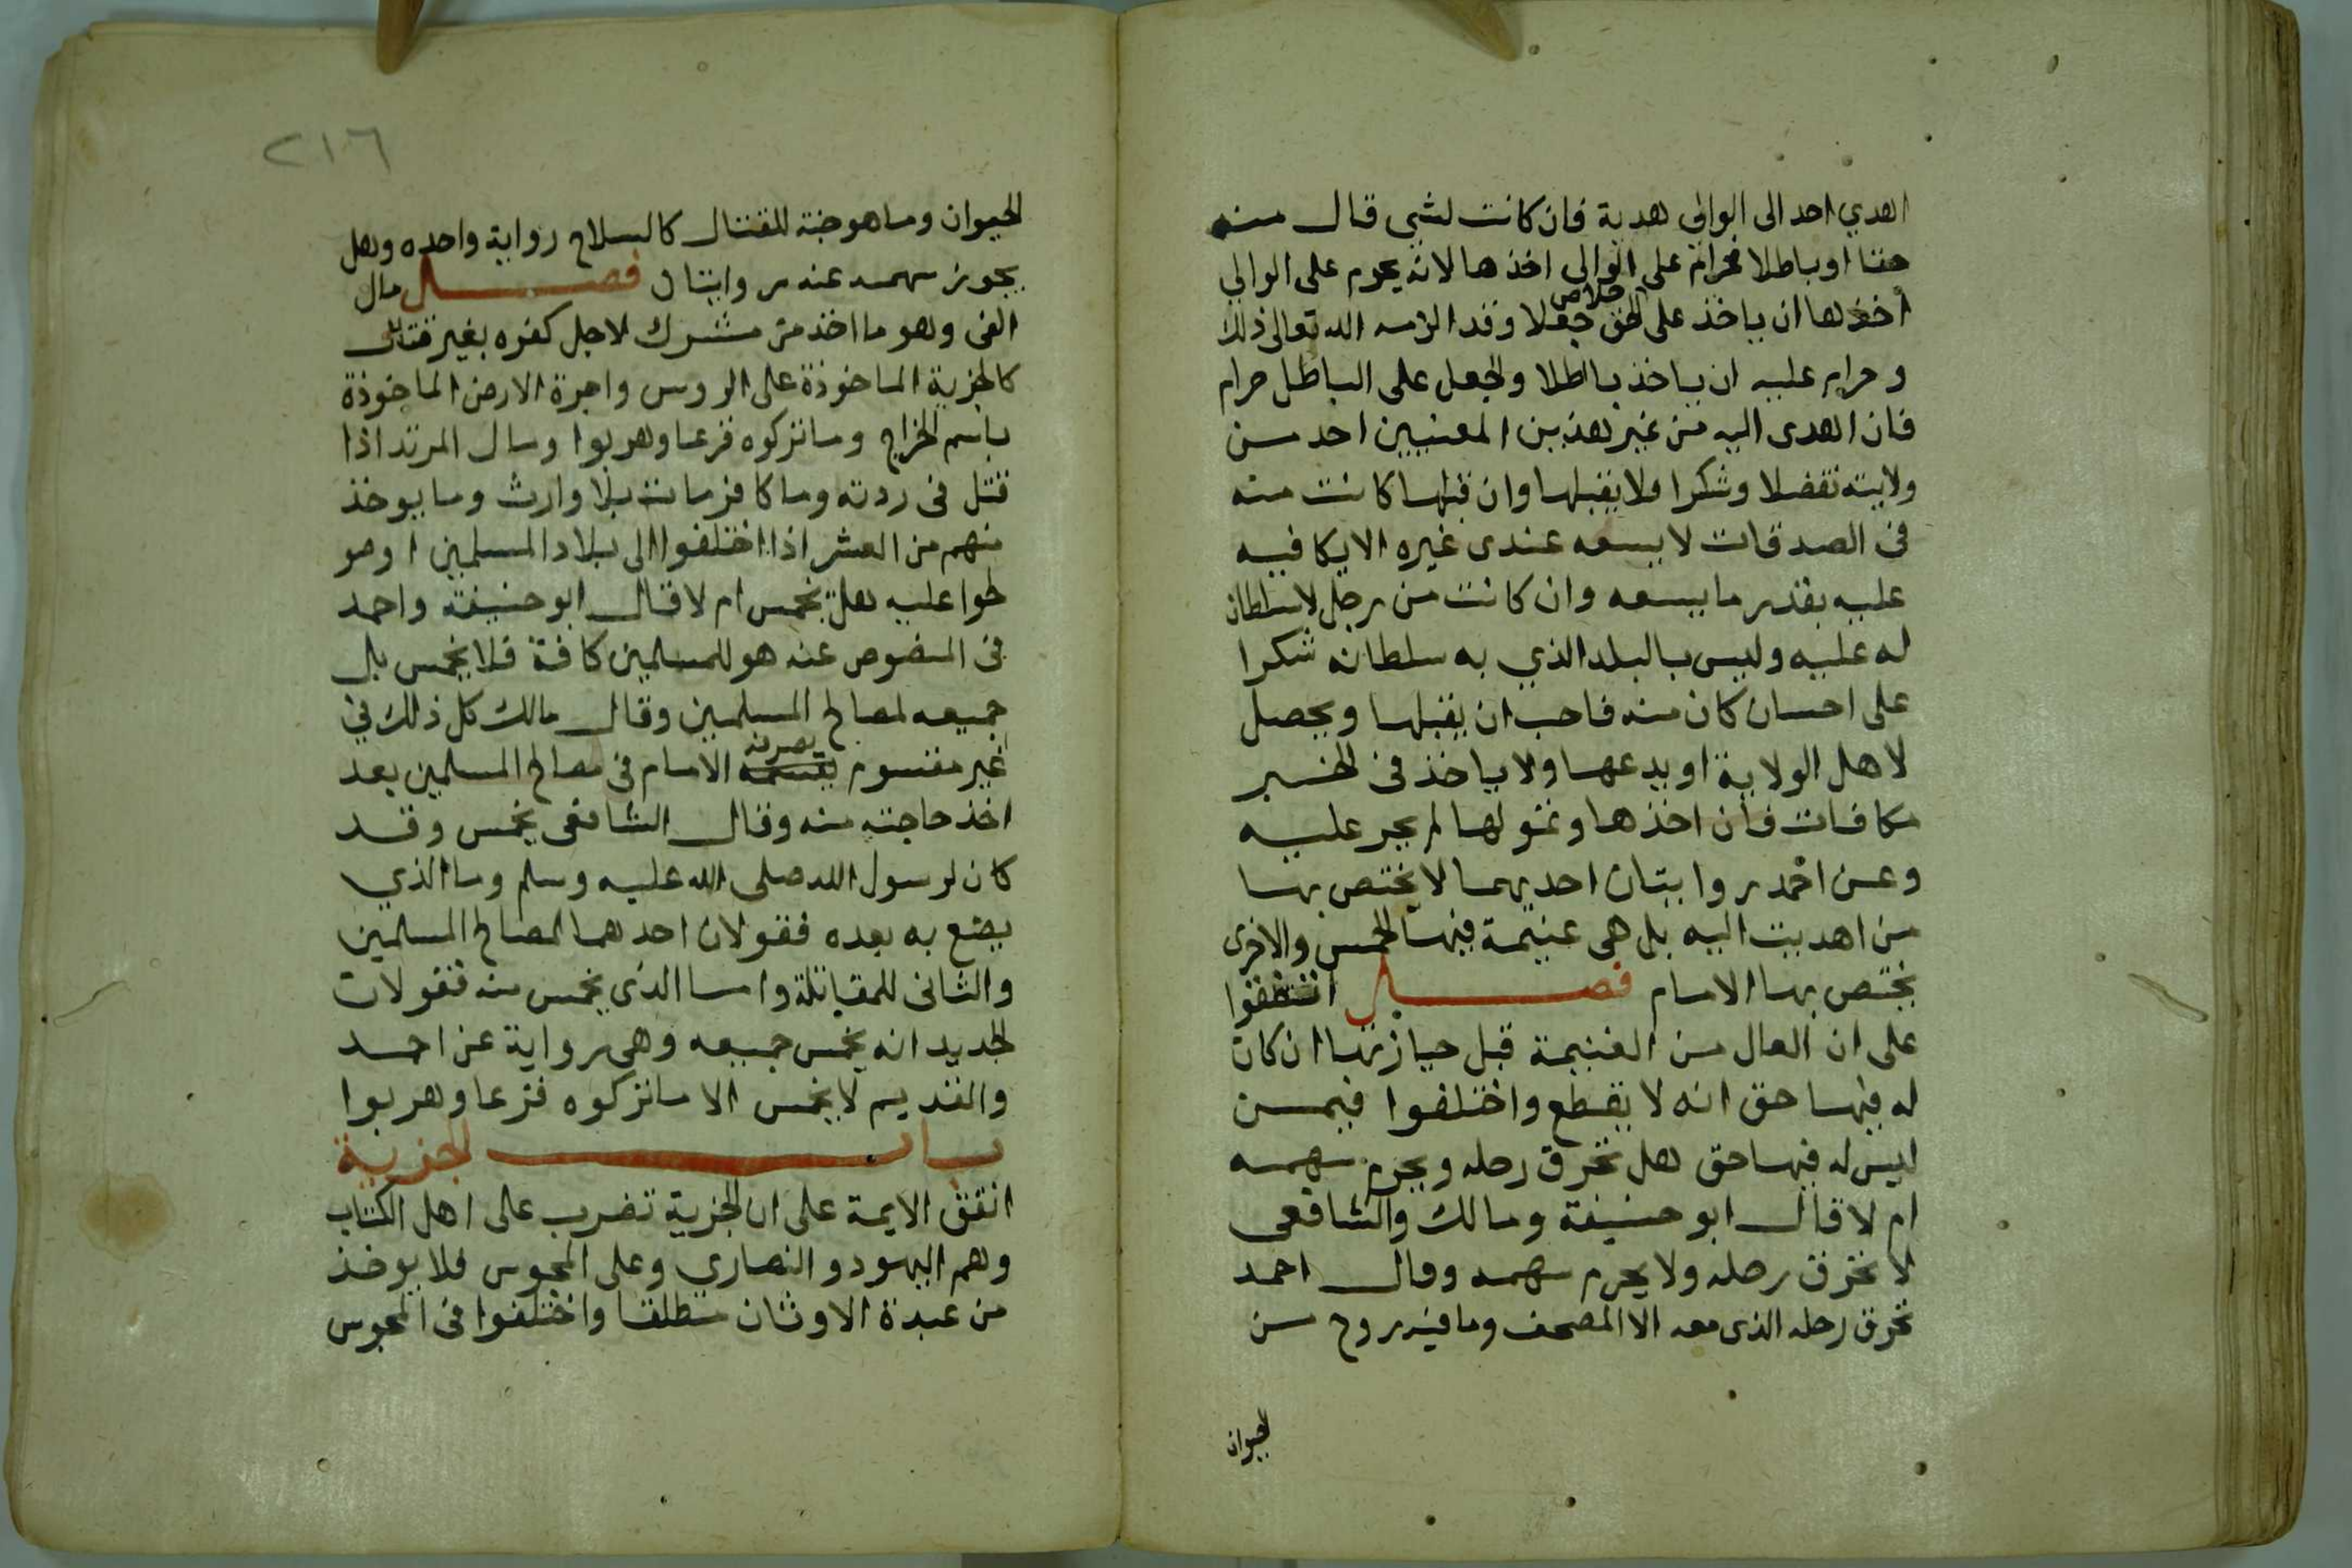 اهدي احد الى الوالي هدية فان كانت لشي قال منه
حقا او باطلا فحرام على الوالي اخذها لانه يحرم على الوالي
اخذها ان ياخذ على خلاص الحق جعلا وقد الزمه الله تعالى ذلك
وحرام عليه ان ياخذ باطلا والجعل على الباطل حرام
فان اهدى اليه من غير هذين المعنيين احد من
ولايته تفضلا وشكرا فلا يقبلها وان قبلها كانت منه
فى الصدقات لا يسعه عندى غيره الا يكافيه
عليه بقدر ما يسعه وان كانت من رجل لا سلطان
له عليه وليس بالبلد الذي به سلطانه شكرا
على احسان كان منه فاحب ان يقبلها ويجعل
لاهل الولاية او يدعها ولا ياخذ فى الخير
مكافات فان اخذها وتمولها لم يحر عليه
وعن احمد روايتان احديهما لا يختص بها
من اهديت اليه بل هى غنيمة فيها الخمس والاخرى
يختص بها الامام فصل اتفقوا
على ان الغال من الغنيمة قبل حيازتها ان كان
له فيها حق انه لا يقطع واختلفوا فيمن
ليس له فيها حق هل تحرق رحله ويحرم سهمه
ام لا قال ابو حنيفة ومالك والشافعى
لا تحرق رحله ولا يحرم سهمه وقال احمد
تحرق رحله الذى معه الا المصحف وما فيه روح من
الحيوان
٢١٦
الحيوان وما هو جنة للقتال كالسلاح رواية واحده وهل
يجوز سهمه عنه روايتان فصل مال
الفى وهو ما اخذ من مشرك لاجل كفره بغير قتال
كالجزية الماخوذة على الروس واجرة الارض الماخوذة
باسم الخراج وما تركوه فزعا وهربوا ومال المرتد اذا
قتل فى ردته وما كافر مات بلا وارث وما يوخذ
منهم من العشر اذا اختلفوا الى بلاد المسلمين او صو
لحوا عليه هل يخمس ام لا قال ابو حنيفة واحمد
فى المنصوص عنه هو للمسلمين كافة فلا يخمس بل
جميعه لمصالح المسلمين وقال مالك كل ذلك فى
غير مقسوم يصرفه الامام فى مصالح المسلمين بعد
اخذ حاجته منه وقال الشافعى يخمس وقد
كان لرسول الله صلى الله عليه وسلم وما الذي
يصنع به بعده فقولان احدهما لمصالح المسلمين
والثانى للمقاتلة واما الذى يخمس منه فقولان
الجديد انه يخمس جميعه وهى رواية عن احمد
والقديم لا يخمس الا ما تركوه فزعا وهربوا
باب الجزية
اتفق الايمة على ان الجزية تضرب على اهل الكتاب
وهم اليهود والنصاري وعلى المجوس فلا يوخذ
من عبدة الاوثان مطلقا واختلفوا فى المجوس